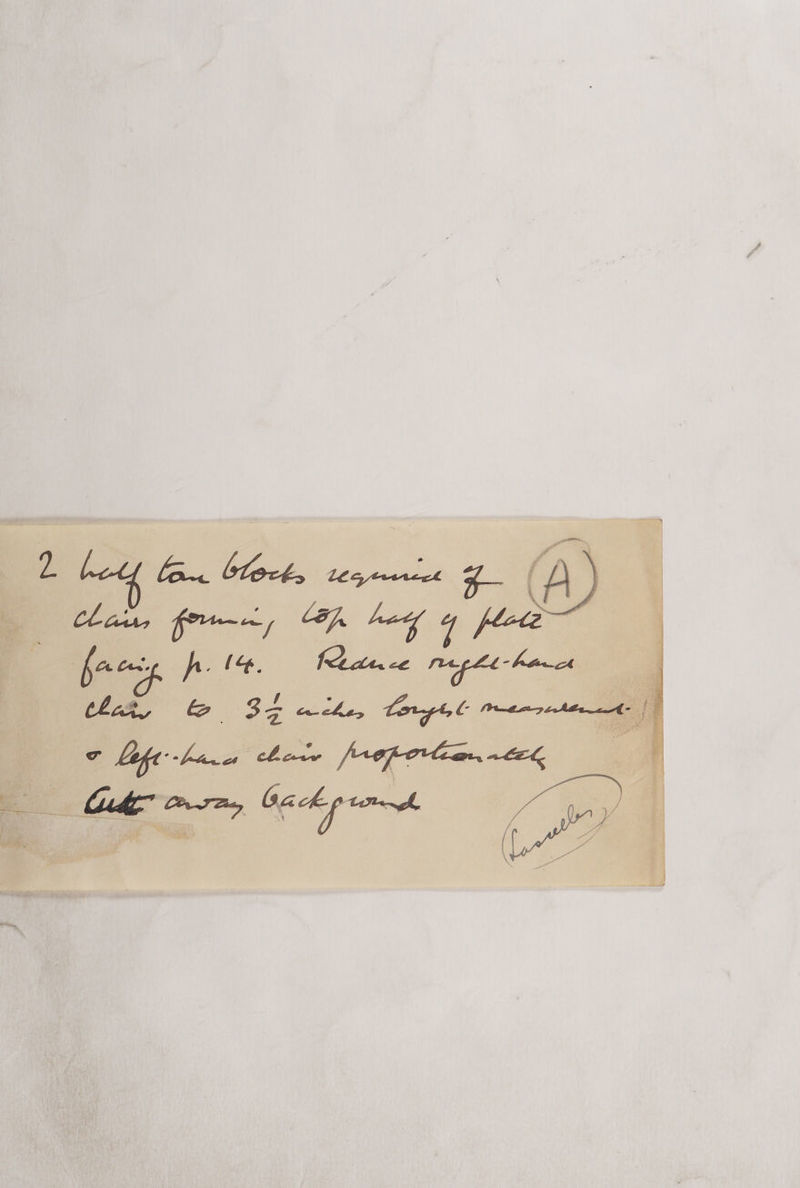 2 half tone blocks required of (A)
chairs forming top half of plate
facing p. 14. Reduce right-hand
chair to 3½ inches longest measurement
& left-hand chair proportionately
Cut away background
Lascelles